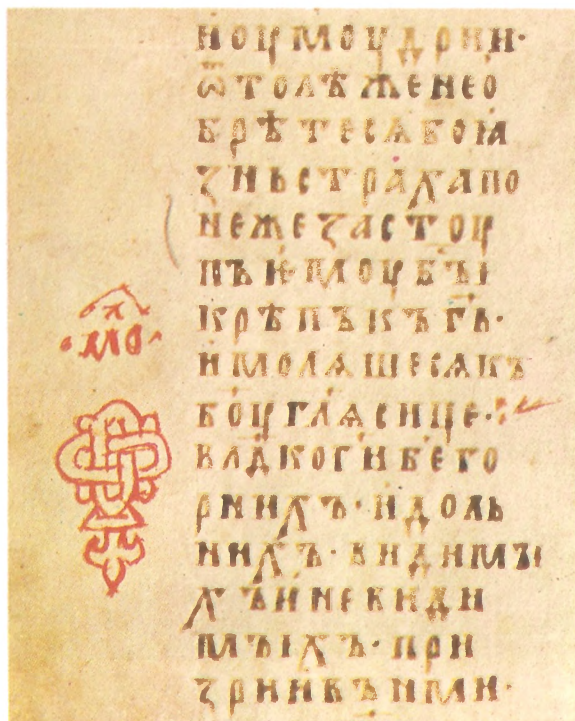 ноꙋмоꙋдрии·
ѿтолѣженео
брѣтесѧбоꙗ
ꙁньстрахапо
нежеꙁастоꙋ
пъѥмоꙋбꙑ
крѣпъкъгь·
имолѧшесѧкъ
боꙋглѧсице·
влдкогибего
рнихъ·идоль
нихъ·видимꙑ
хъиневиди
мꙑхъ·при
ꙁриивънми·
мо л